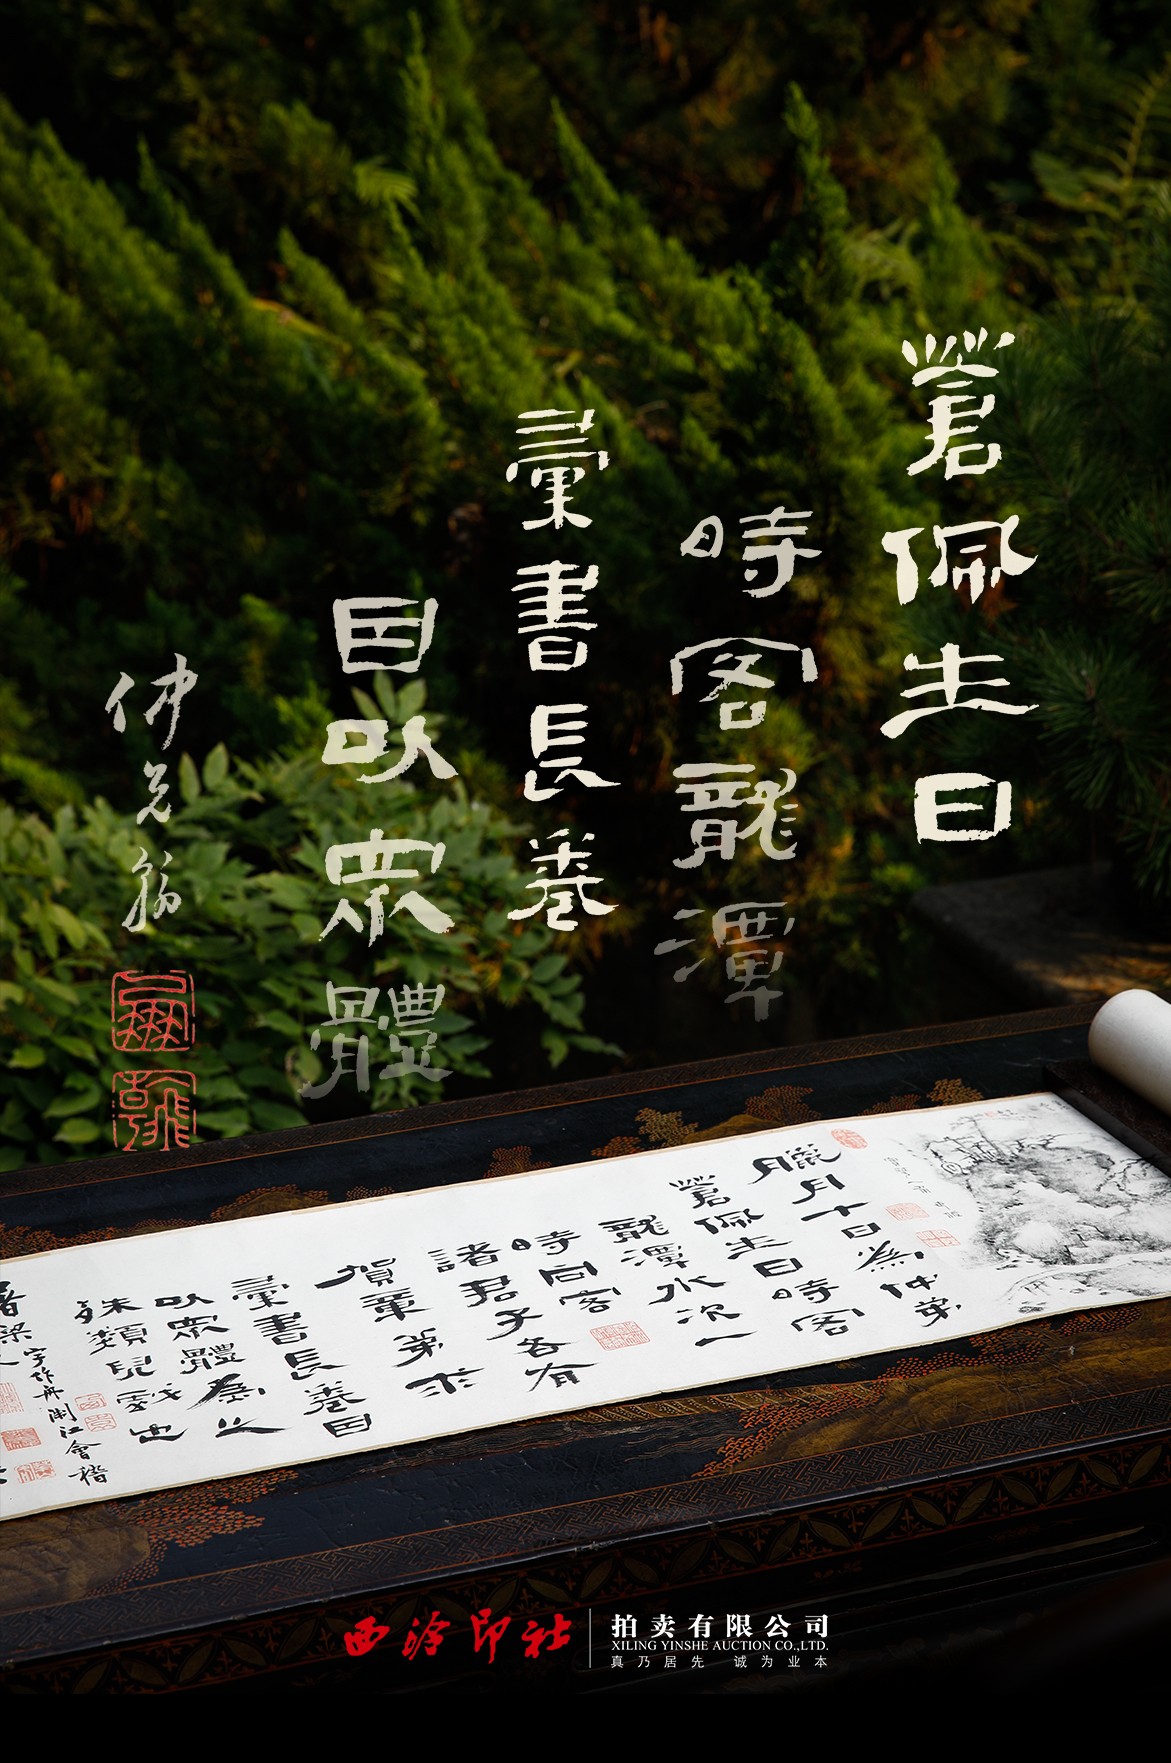 蒼佩生日
時客龍潭
彙書長卷
因以眾體
仲光翁
臘月十日為仲弟
蒼佩生日時客
龍潭水次一
時同客
諸君子各有
賀章弟求
彙書長卷因
以眾體為之
殊類兒戲也
西泠印社
拍卖有限公司
XILING YINSHE AUCTION CO.,LTD.
真乃居先 诚为业本